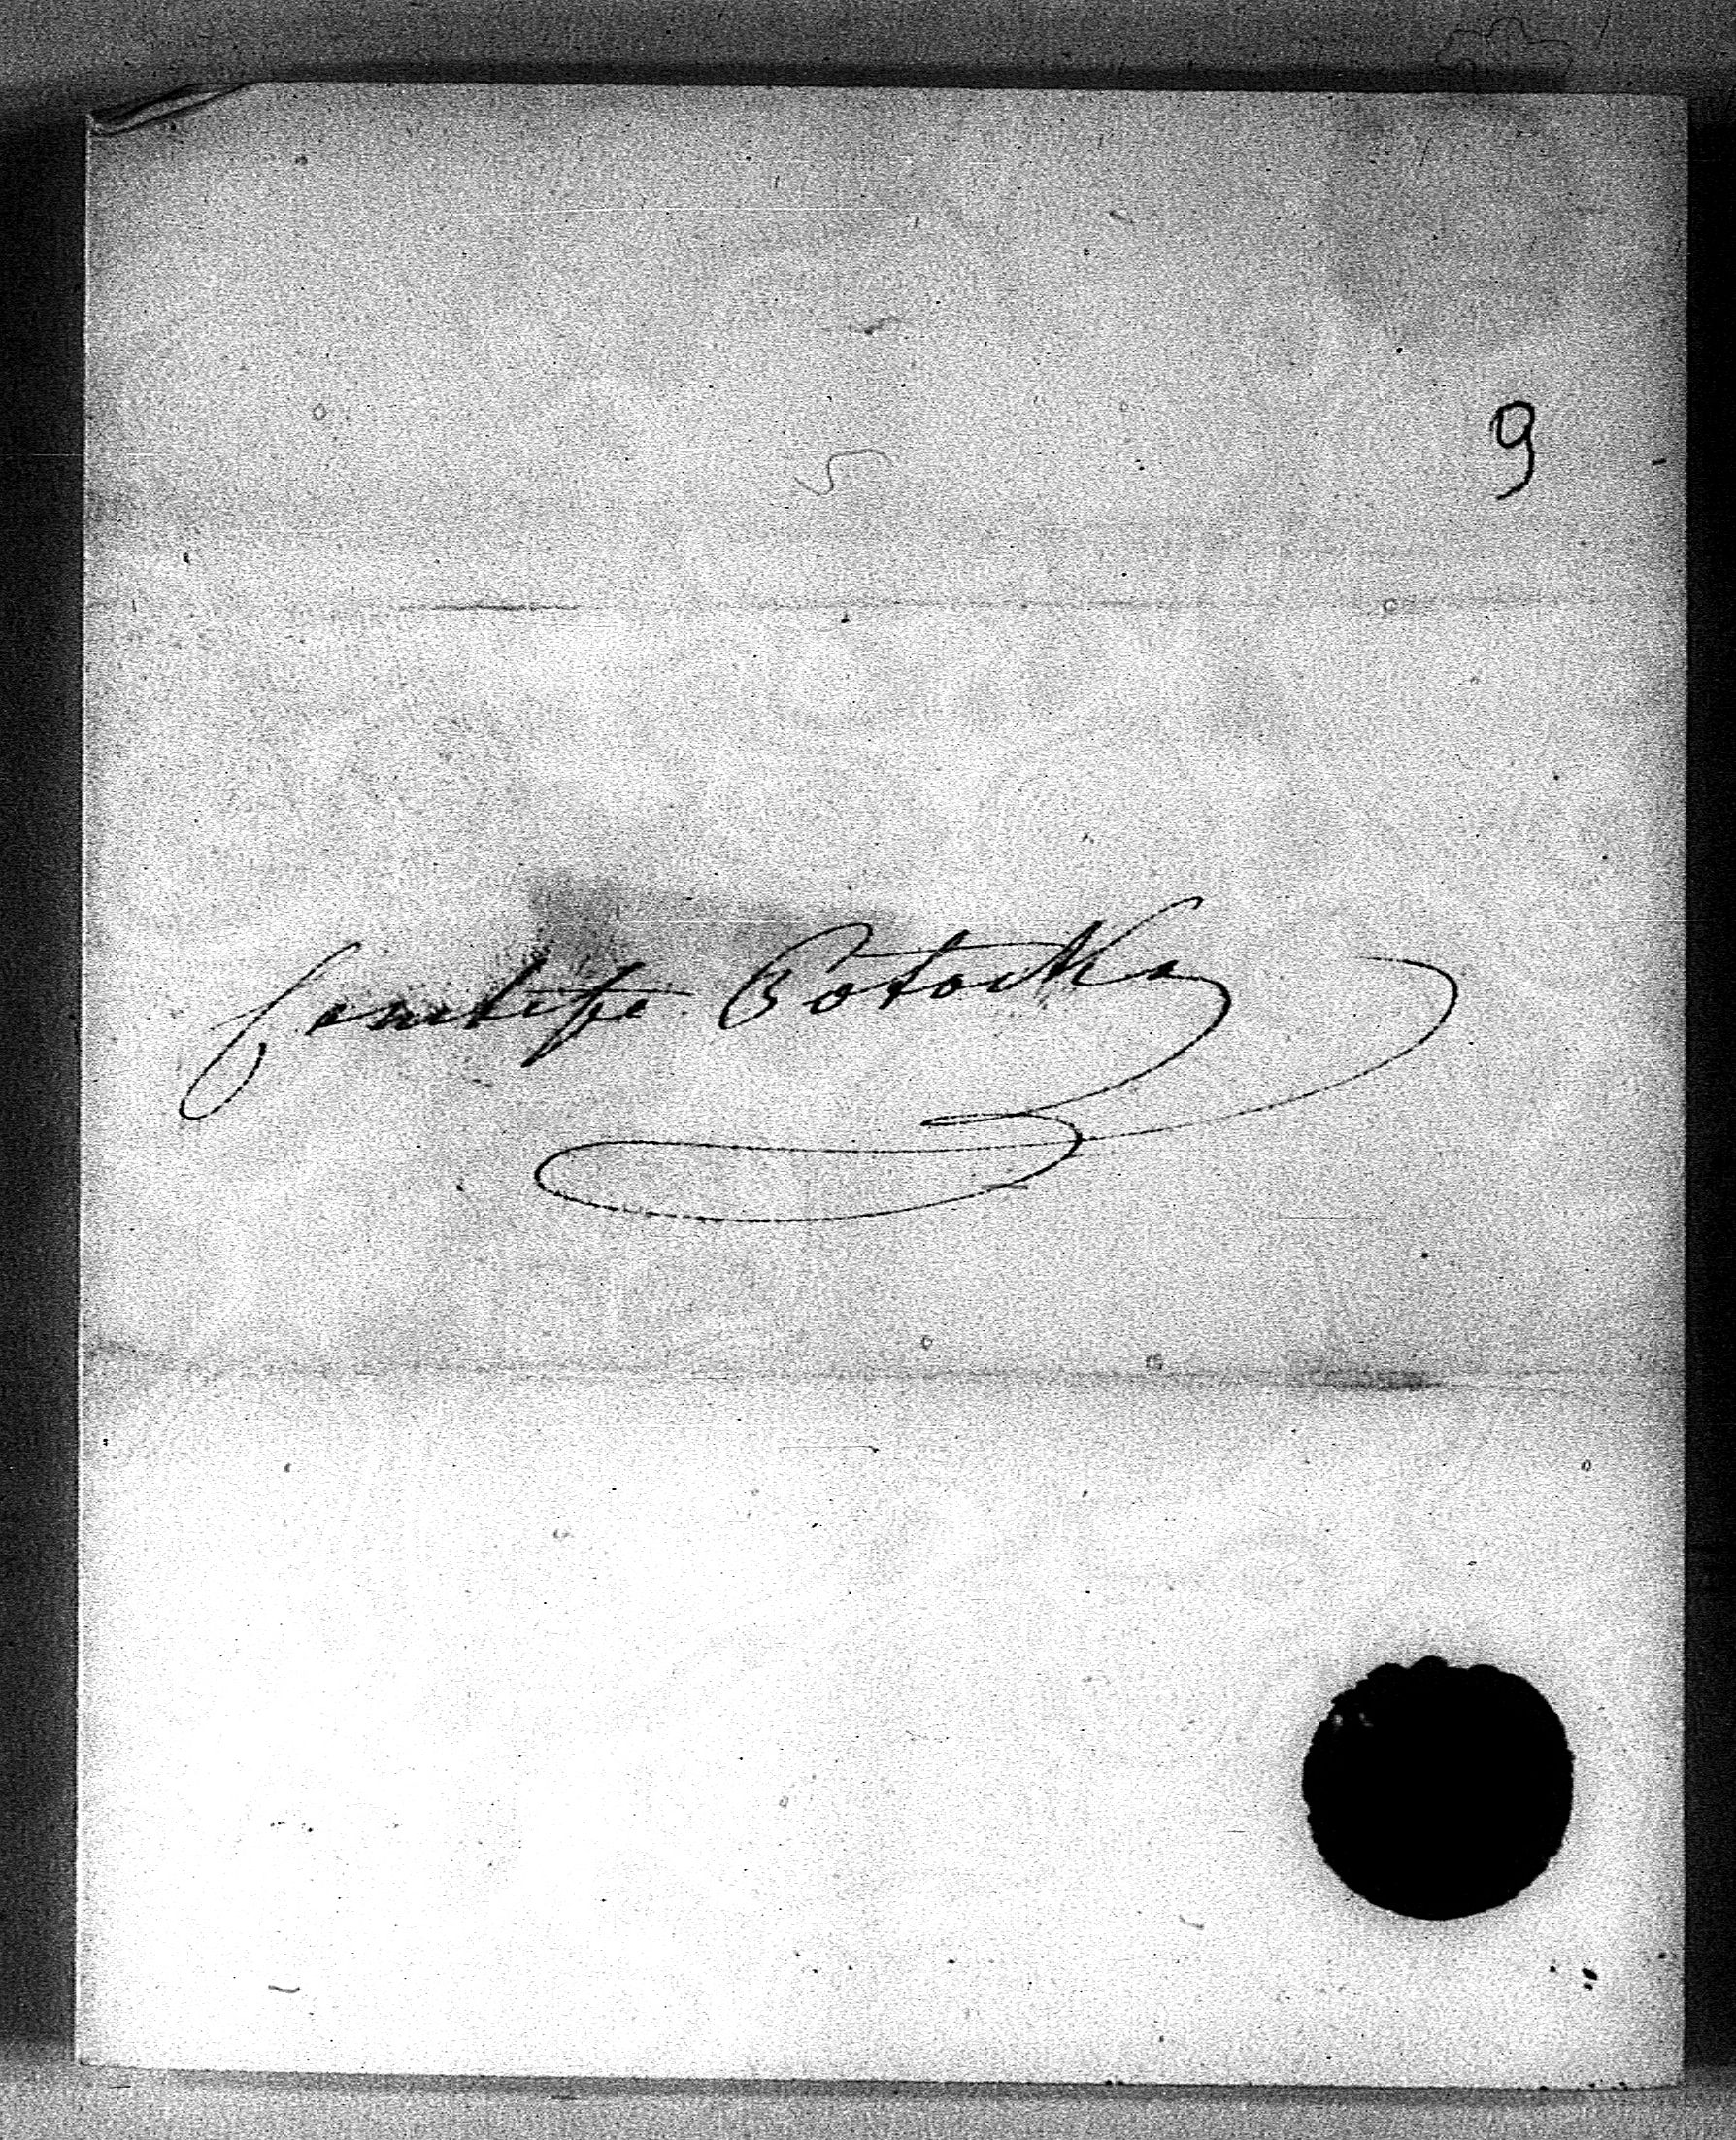 9
Comtesse Potocka